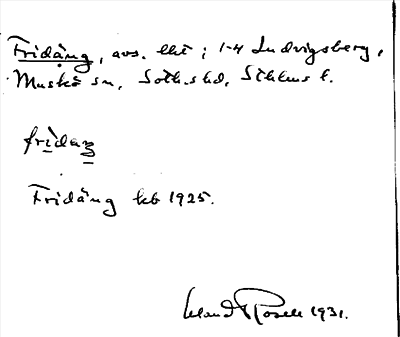 Fridäng, avs. lht; 1-4 Ludvigsberg,
Muskö sn, Soth. shd, Sthlms l.
fridäŋ
Fridäng kb 1925.
Rosell 1931.